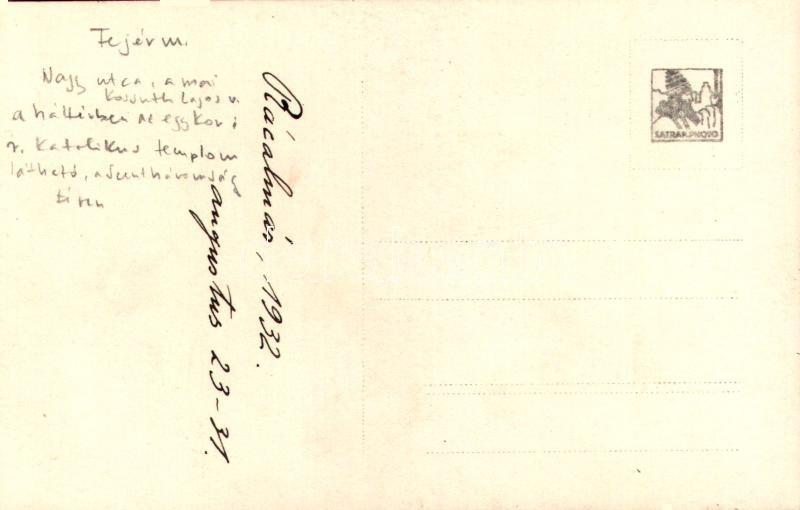 Fejér m.
Nagy utca, a mai
Kossuth Lajos u.
a háttérben az egykori
r. katolikus templom
látható, a Szentháromság
téren
Rácalmás, 1932.
augusztus 23-31.